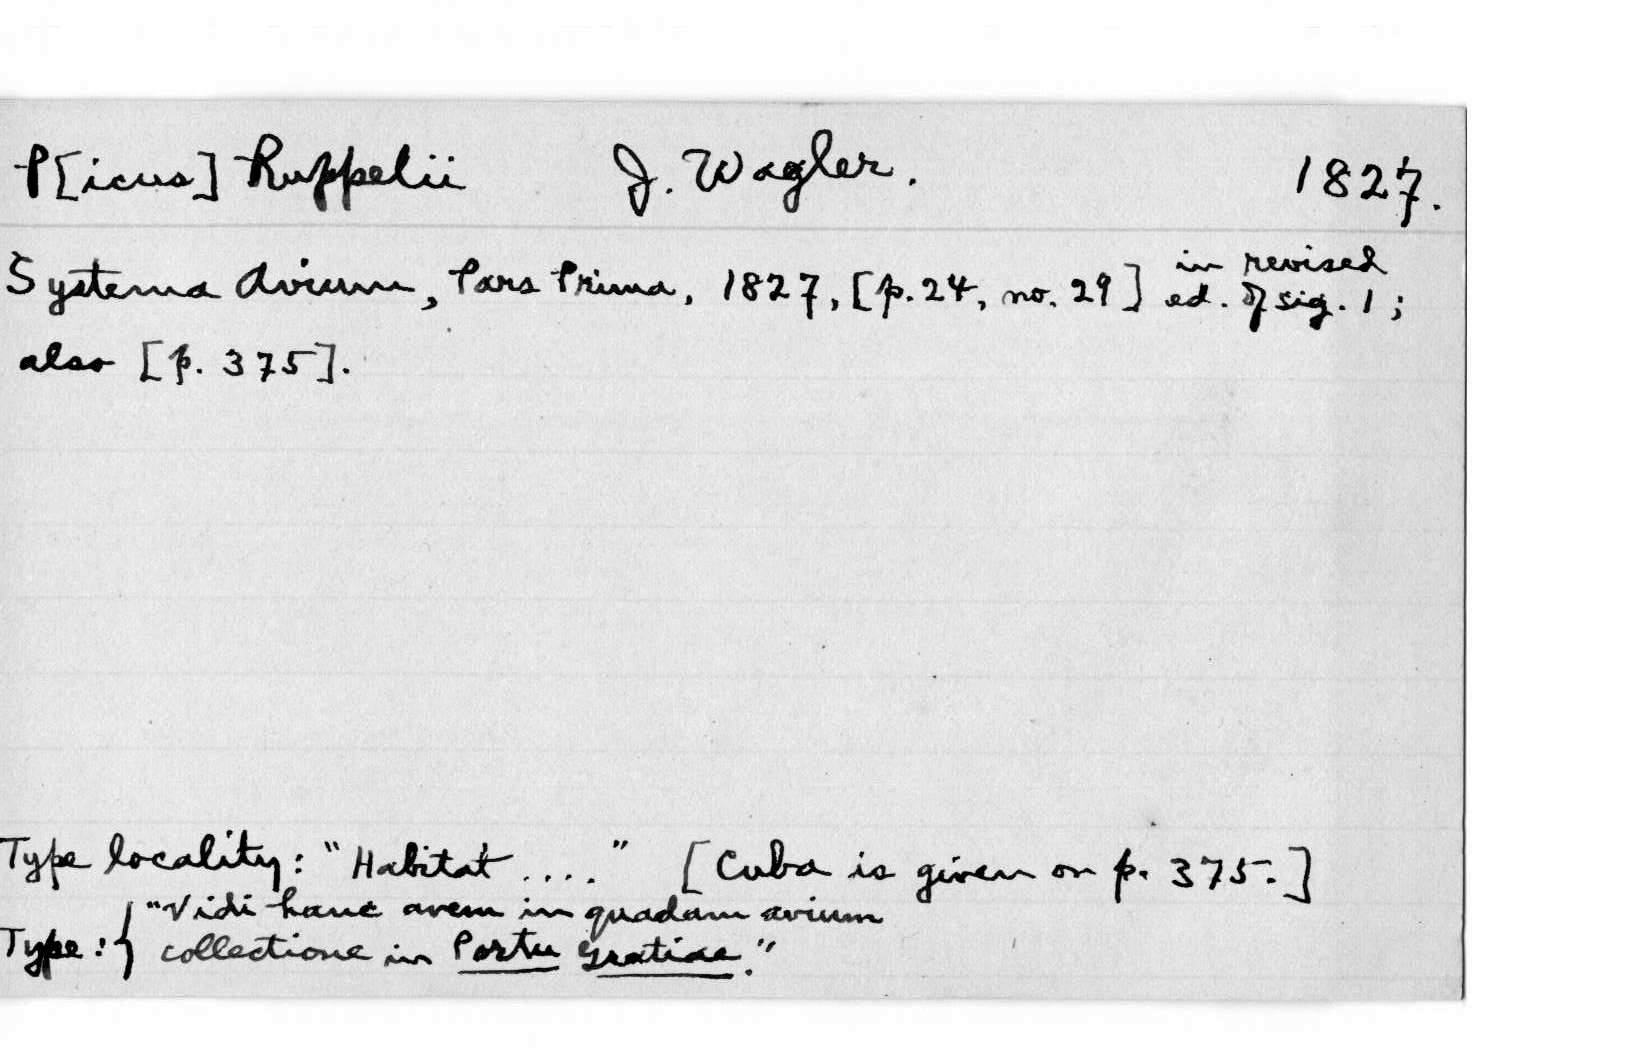 P[icus] Ruppelii J. Wagler. 1827.
Systema Avium, Pars Prima, 1827, [p. 24, no. 29] in revised ed. of sig. 1;
also [p. 375].
Type locality: "Habitat ...." [Cuba is given on p. 375.]
Type: { "Vidi hanc avem in quadam avium
collectione in Portu Gratiae."